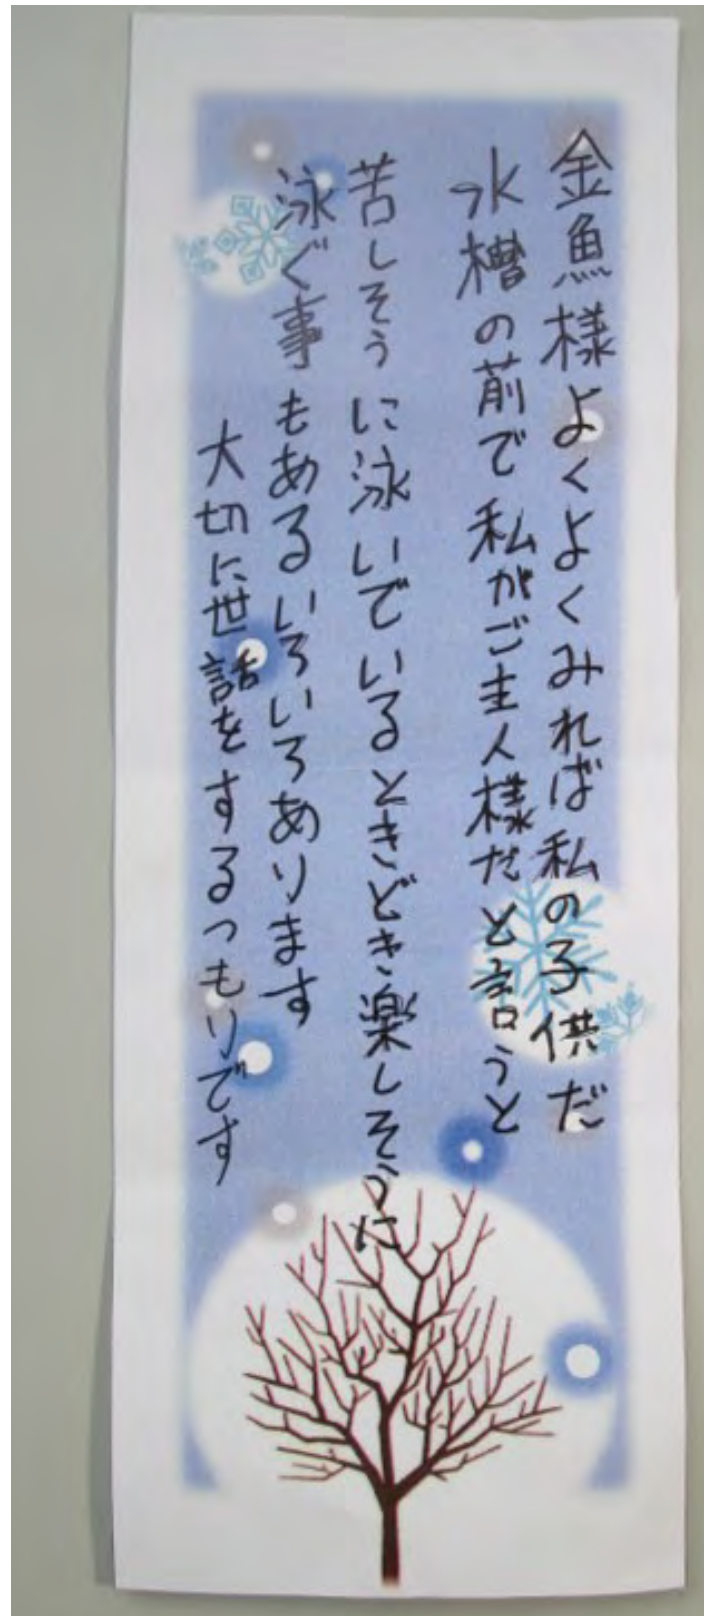 金魚様よくよくみれば私の子供だ
水槽の前で私がご主人様だと言うと
苦しそうに泳いでいるときどき楽しそうに
泳ぐ事もあるいろいろあります
大切に世話をするつもりです